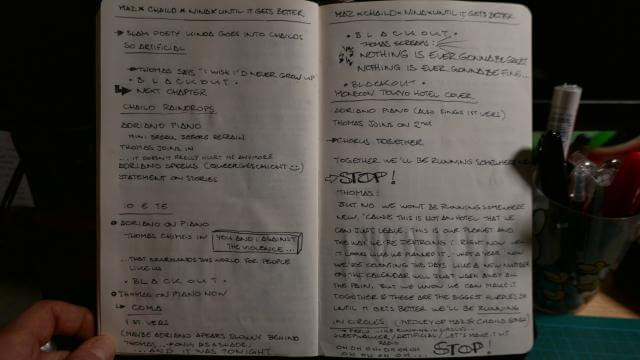 MAZ × CHAILD × NINA × UNTIL IT GETS BETTER
→ SLAM POETY KINDA GOES INTO CHAILDS
SO ARTIFICIAL
→ THOMAS SAYS "I WISH I'D NEVER GROW UP"
• B L A C K O U T •
→ NEXT CHAPTER
CHAILD RAINDROPS
ADRIANO PIANO
MINI BREAK BEFORE REFRAIN
THOMAS JOINS IN
... IT DOESN'T REALLY HURT ME ANYMORE
ADRIANO SPEAKS (QUEERGESCHICHT)
STATEMENT ON STORIES
IO E TE
ADRIANO ON PIANO
THOMAS CHIMES IN YOU AND I AGAINST
THE VIOLENCE...
...THAT SURROUNDS THIS WORLD FOR PEOPLE
LIKE US
• B L A C K O U T •
THOMAS ON PIANO NOW
COMA
1ST VERS
(MAYBE ADRIANO APEARS SLOWLY BEHIND
THOMAS, → ONLY AS A SHADE)
... AND IT WAS TONIGHT
MAZ × CHAILD × NINA × UNTIL IT GETS BETTER
• B L A C K O U T •
THOMAS SCREAMS:
NOTHING IS EVER GONNA BE GREAT
NOTHING IS EVER GONNA BE FINE...
• BLACKOUT •
MONSOON TOKYO HOTEL COVER
ADRIANO PIANO (ALSO SINGS 1ST VERS)
THOMAS JOINS ON 2ND
→ CHORUS TOGETHER
TOGETHER WE'LL BE RUNNING SOMEWHERE
STOP!
THOMAS:
JUST NO WE WON'T BE RUNNING SOMEWHERE
NEW, 'CAUSE THIS IS NOT AN HOTEL THAT WE
CAN JUST LEAVE, THIS IS OUR PLANET AND
THE WAY WE'RE DESTROING IT RIGHT NOW
LOOKS LIKE WE PLANNED IT. WHAT A YEAR NOW
WE'RE COUNTING THE DAYS LIKE A NEW NUMBER
ON THE CALENDAR WILL JUST WASH AWAY ALL
THE PAIN, BUT WE KNOW WE CAN MAKE IT
TOGETHER & THESE ARE THE BIGGEST HURDLES SO
UNTIL IT GETS BETTER WE'LL BE RUNNING...
IN CIRCLES (MEDLEY OF MAZ & CHAILD SONGS)
SLEEPWALKER / ARTIFICIAL / LET'S MAKE IT
OH OH OH OH
STOP!